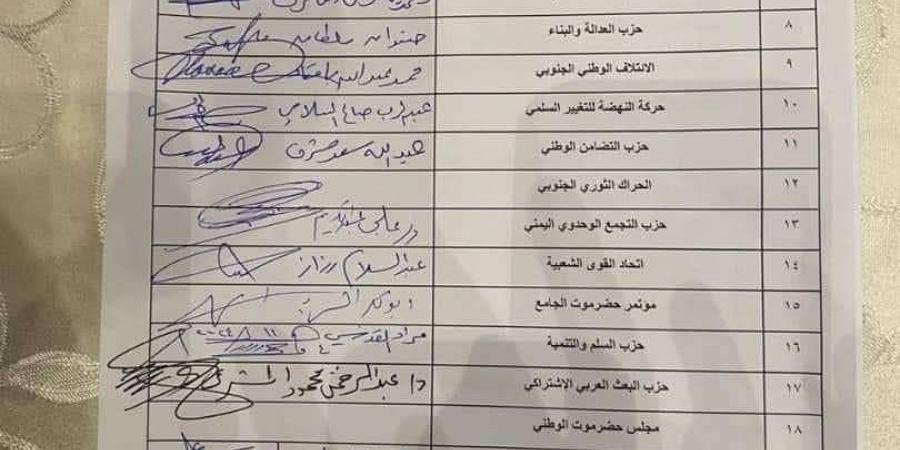 ٨ حزب العدالة والبناء صفوان سلطان
٩ الائتلاف الوطني الجنوبي محمد عبدالله
١٠ حركة النهضة للتغيير السلمي عبدالرب صالح السلامي
١١ حزب التضامن الوطني عبدالله سعد شرف
١٢ الحراك الثوري الجنوبي
١٣ حزب التجمع الوحدوي اليمني د/علي عبدالكريم
١٤ اتحاد القوى الشعبية عبدالسلام رزاز
١٥ مؤتمر حضرموت الجامع
١٦ حزب السلم والتنمية مراد القدسي
١٧ حزب البعث العربي الاشتراكي د/ عبدالرحمن محمود
١٨ مجلس حضرموت الوطني